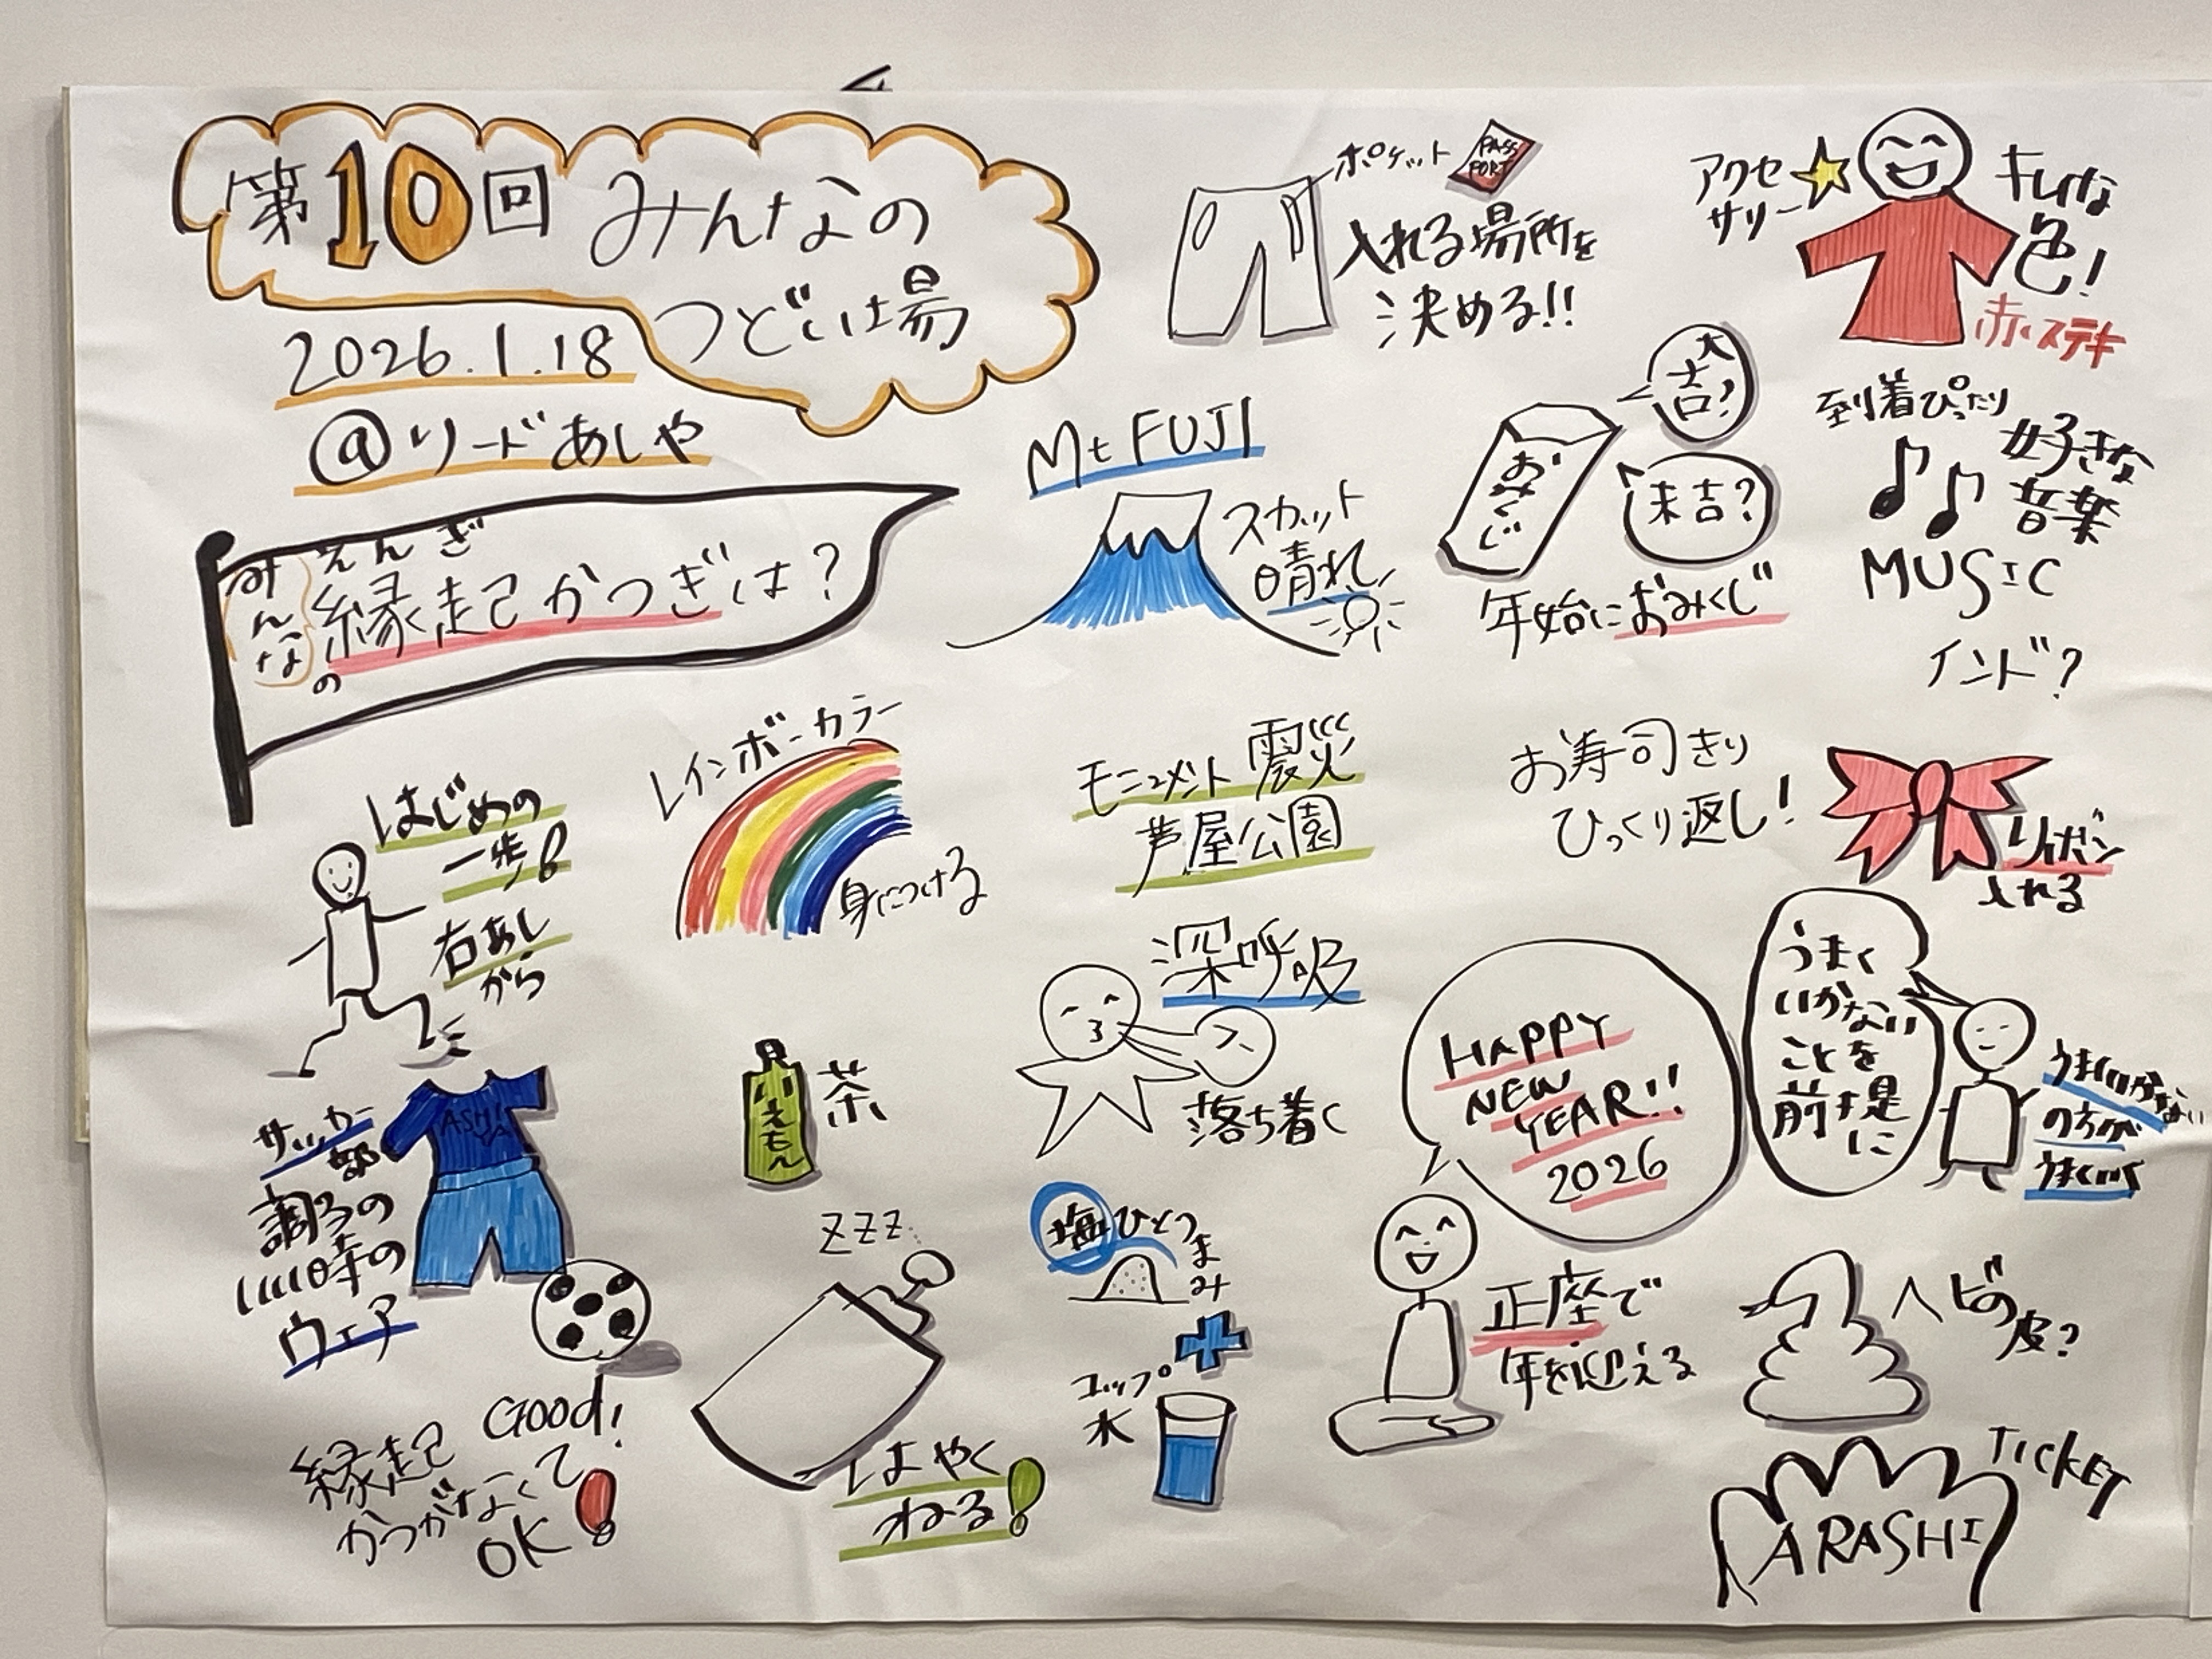 第10回 みんなの
つどい場
2026.1.18
@リードあしや
えんぎ
みんなの
縁起かつぎは？
ポケット
PASS
PORT
入れる場所を
決める!!
アクセ
サリー
色！
赤いステキ
Mt FUJI
スカット
晴れ
おみくじ
大吉？
末吉？
年始におみくじ
到着ぴったり
好きな
音楽
MUSIC
インド？
はじめの
一歩
右あし
から
レインボーカラー
身につける
モニュメント 震災
芦屋公園
お寿司きり
ひっくり返し！
リボン
入れる
サッカー
部
調子の
いい時の
ウェア
ASHI
YA
茶
深呼吸
落ち着く
HAPPY
NEW
YEAR!!
2026
正座で
年を迎える
うまく
いかない
ことを
前提
に
うまくいかない
の方が
うまくいく
zzz
はやく
ねる！
塩ひとつまみ
コップ
水
ヘビの
皮？
Good!
縁起
かつがなくて
OK！
TICKET
ARASHI